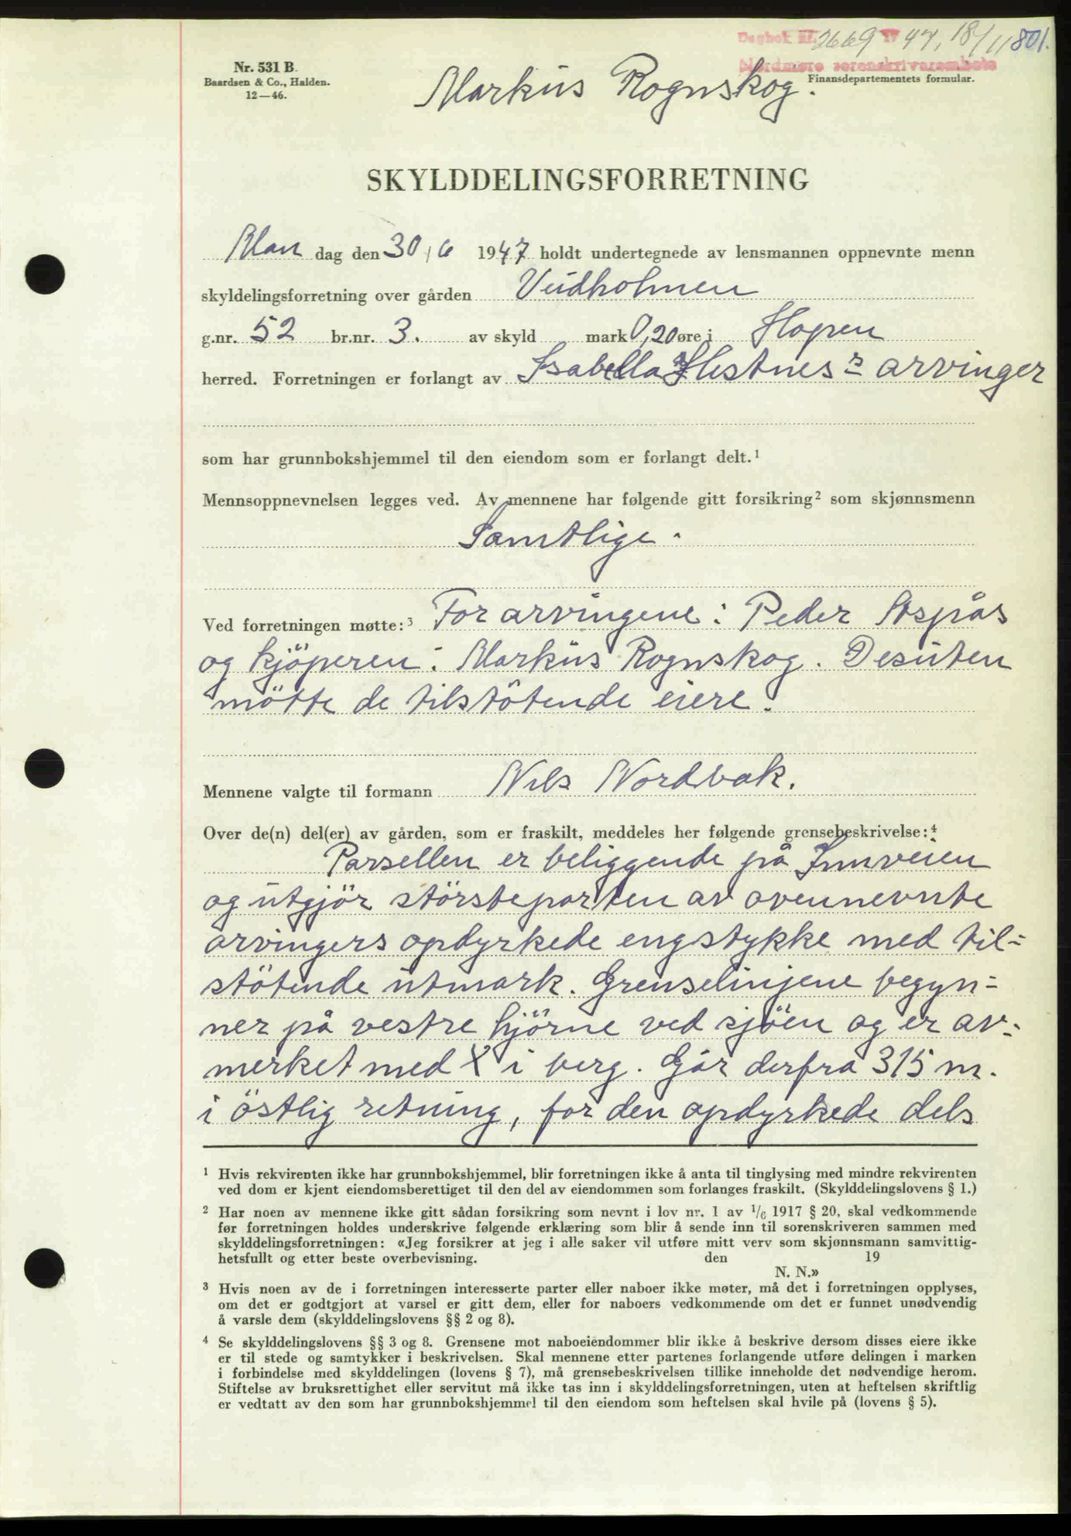 Dagbok nr. 2669 19 47, 18/11 801.
Nordmøre sorenskriverembete
Nr. 531 B.
Baardsen & Co., Halden.
12—46.
Finansdepartementets formular.
Markus Rognskog.
SKYLDDELINGSFORRETNING
Man dag den 30/6 1947 holdt undertegnede av lensmannen oppnevnte menn
skyldelingsforretning over gården Veidholmen
g.nr. 52 br.nr. 3. av skyld mark 0,20 øre i Hopen
herred. Forretningen er forlangt av Isabella Hestnes's arvinger
som har grunnbokshjemmel til den eiendom som er forlangt delt.¹
Mennsoppnevnelsen legges ved. Av mennene har følgende gitt forsikring² som skjønnsmenn
Samtlige.
Ved forretningen møtte:³ For arvingene: Peder
og kjöperen: Markus Rognskog. Desuten
mötte de tilstötende eiere.
Mennene valgte til formann Nils Nordvak.
Over de(n) del(er) av gården, som er fraskilt, meddeles her følgende grensebeskrivelse:⁴
Parsellen er beliggende på Innveien
og utgjör störsteparten av ovennevnte
arvingers opdyrkede engstykke med til=
stötende utmark. Grenselinjene begyn=
ner på vestre hjörne ved sjöen og er av=
merket med X i berg. Går derfra 315 m.
i östlig retning, for den opdyrkede dels
¹ Hvis rekvirenten ikke har grunnbokshjemmel, blir forretningen ikke å anta til tinglysing med mindre rekvirenten
ved dom er kjent eiendomsberettiget til den del av eiendommen som forlanges fraskilt. (Skylddelingslovens § 1.)
² Har noen av mennene ikke gitt sådan forsikring som nevnt i lov nr. 1 av 1/6 1917 § 20, skal vedkommende
før forretningen holdes underskrive følgende erklæring som blir å sende inn til sorenskriveren sammen med
skylddelingsforretningen: «Jeg forsikrer at jeg i alle saker vil utføre mitt verv som skjønnsmann samvittig-
hetsfullt og etter beste overbevisning. den 19
N. N.»
³ Hvis noen av de i forretningen interesserte parter eller naboer ikke møter, må det i forretningen opplyses,
om det er godtgjort at varsel er gitt dem, eller for naboers vedkommende om det er funnet unødvendig
å varsle dem (skylddelingslovens §§ 2 og 8).
⁴ Se skylddelingslovens §§ 3 og 8. Grensene mot naboeiendommer blir ikke å beskrive dersom disses eiere ikke
er til stede og samtykker i beskrivelsen. Skal mennene etter partenes forlangende utføre delingen i marken
i forbindelse med skylddelingen (lovens § 7), må grensebeskrivelsen tillike inneholde det nødvendige herom.
Stiftelse av bruksrettighet eller servitut må ikke tas inn i skylddelingsforretningen, uten at heftelsen skriftlig
er vedtatt av den som har grunnbokshjemmel til den eiendom som heftelsen skal hvile på (lovens § 5).